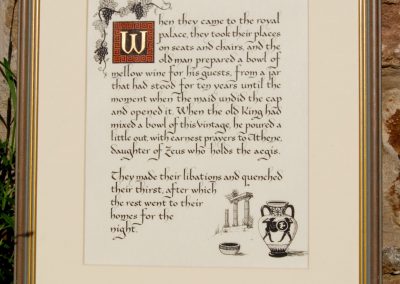 When they came to the royal
palace, they took their places
on seats and chairs, and the
old man prepared a bowl of
mellow wine for his guests, from a jar
that had stood for ten years until the
moment when the maid undid the cap
and opened it. When the old King had
mixed a bowl of this vintage, he poured a
little out, with earnest prayers to Athene,
daughter of Zeus who holds the aegis.
They made their libations and quenched
their thirst, after which
the rest went to their
homes for the
night.